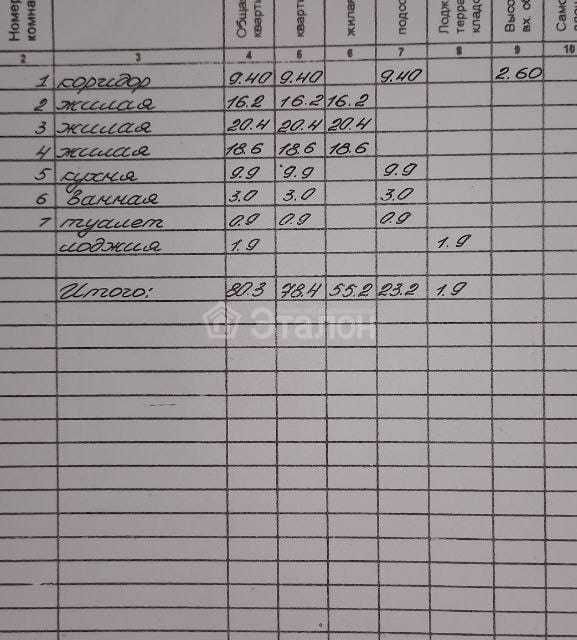 Номер комна
Общая кварти
кварти
жилая
подсо
Лодж терра кладо
Высо вх. об
Само
2 3 4 5 6 7 8 9 10
1 коридор 9.40 9.40 9.40 2.60
2 жилая 16.2 16.2 16.2
3 жилая 20.4 20.4 20.4
4 жилая 18.6 18.6 18.6
5 кухня 9.9 9.9 9.9
6 ванная 3.0 3.0 3.0
7 туалет 0.9 0.9 0.9
лоджия 1.9 1.9
Итого: 80.3 78.4 55.2 23.2 1.9
Эталон